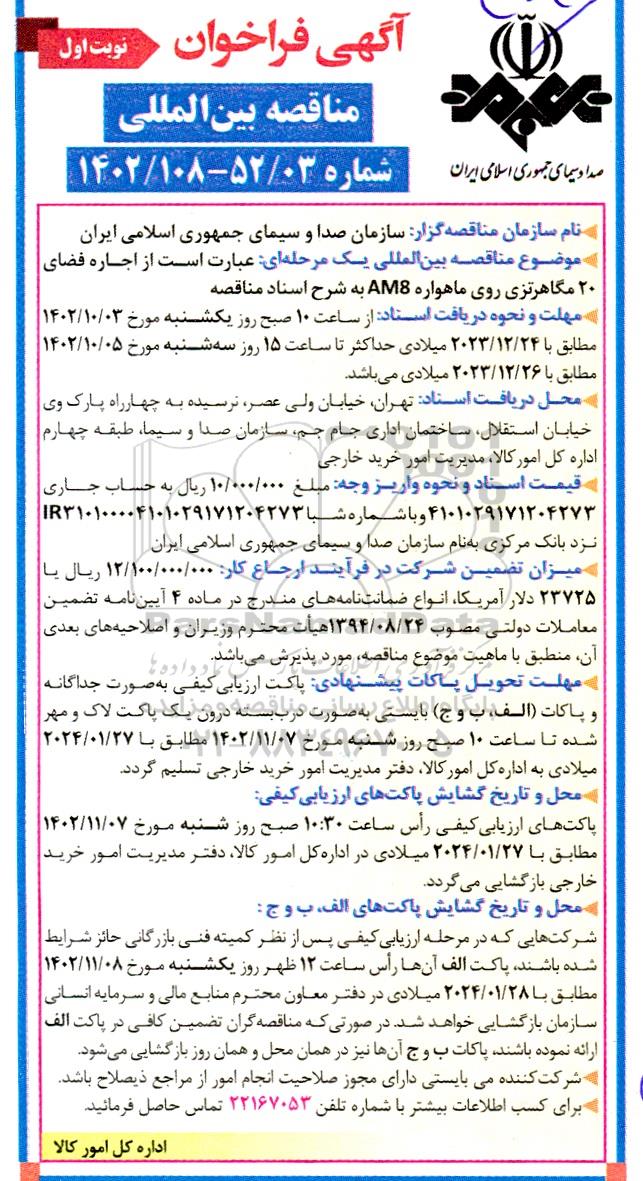 آگهی فراخوان
نوبت اول
مناقصه بین‌المللی
شماره ۵۲/۰۳-۱۴۰۲/۱۰۸
صدا و سیمای جمهوری اسلامی ایران
نام سازمان مناقصه‌گزار: سازمان صدا و سیمای جمهوری اسلامی ایران
موضوع مناقصه بین‌المللی یک مرحله‌ای: عبارت است از اجاره فضای
۲۰ مگاهرتزی روی ماهواره AM8 به شرح اسناد مناقصه
مهلت و نحوه دریافت اسناد: از ساعت ۱۰ صبح روز یکشنبه مورخ ۱۴۰۲/۱۰/۰۳
مطابق با ۲۰۲۳/۱۲/۲۴ میلادی حداکثر تا ساعت ۱۵ روز سه‌شنبه مورخ ۱۴۰۲/۱۰/۰۵
مطابق با ۲۰۲۳/۱۲/۲۶ میلادی می‌باشد.
محل دریافت اسناد: تهران، خیابان ولی عصر، نرسیده به چهارراه پارک وی
خیابان استقلال، ساختمان اداری جام جم، سازمان صدا و سیما، طبقه چهارم
اداره کل امور کالا، مدیریت امور خرید خارجی
قیمت اسناد و نحوه واریز وجه: مبلغ ۱۰/۰۰۰/۰۰۰ ریال به حساب جاری
۴۱۰۱۰۲۹۱۷۱۲۰۴۲۷۳ و با شماره شبا IR۳۱۰۱۰۰۰۰۴۱۰۱۰۲۹۱۷۱۲۰۴۲۷۳
نزد بانک مرکزی به‌نام سازمان صدا و سیمای جمهوری اسلامی ایران
میزان تضمین شرکت در فرآیند ارجاع کار: ۱۲/۱۰۰/۰۰۰/۰۰۰ ریال یا
۲۳۷۲۵ دلار آمریکا، انواع ضمانت‌نامه‌های مندرج در ماده ۴ آیین‌نامه تضمین
معاملات دولتی مصوب ۱۳۹۴/۰۸/۲۴ هیأت محترم وزیران و اصلاحیه‌های بعدی
آن، منطبق با ماهیت موضوع مناقصه، مورد پذیرش می‌باشد.
مهلت تحویل پاکات پیشنهادی: پاکت ارزیابی کیفی به‌صورت جداگانه
و پاکات (الف، ب و ج) بایستی به‌صورت درب‌بسته درون یک پاکت لاک و مهر
شده تا ساعت ۱۰ صبح روز شنبه مورخ ۱۴۰۲/۱۱/۰۷ مطابق با ۲۰۲۴/۰۱/۲۷
میلادی به اداره کل امور کالا، دفتر مدیریت امور خرید خارجی تسلیم گردد.
محل و تاریخ گشایش پاکت‌های ارزیابی کیفی:
پاکت‌های ارزیابی کیفی رأس ساعت ۱۰:۳۰ صبح روز شنبه مورخ ۱۴۰۲/۱۱/۰۷
مطابق با ۲۰۲۴/۰۱/۲۷ میلادی در اداره‌کل امور کالا، دفتر مدیریت امور خرید
خارجی بازگشایی می‌گردد.
محل و تاریخ گشایش پاکت‌های الف، ب و ج :
شرکت‌هایی که در مرحله ارزیابی کیفی پس از نظر کمیته فنی بازرگانی حائز شرایط
شده باشند، پاکت الف آن‌ها رأس ساعت ۱۲ ظهر روز یکشنبه مورخ ۱۴۰۲/۱۱/۰۸
مطابق با ۲۰۲۴/۰۱/۲۸ میلادی در دفتر معاون محترم منابع مالی و سرمایه انسانی
سازمان بازگشایی خواهد شد. در صورتی که مناقصه‌گران تضمین کافی در پاکت الف
ارائه نموده باشند، پاکات ب و ج آن‌ها نیز در همان محل و همان روز بازگشایی می‌شود.
شرکت‌کننده می بایستی دارای مجوز صلاحیت انجام امور از مراجع ذیصلاح باشد.
برای کسب اطلاعات بیشتر با شماره تلفن ۲۲۱۶۷۰۵۳ تماس حاصل فرمائید.
اداره کل امور کالا
ParsNamadData
پایگاه اطلاع رسانی مناقصه و مزایده
۰۲۱-۸۸۳۴۹۶۷۰-۵